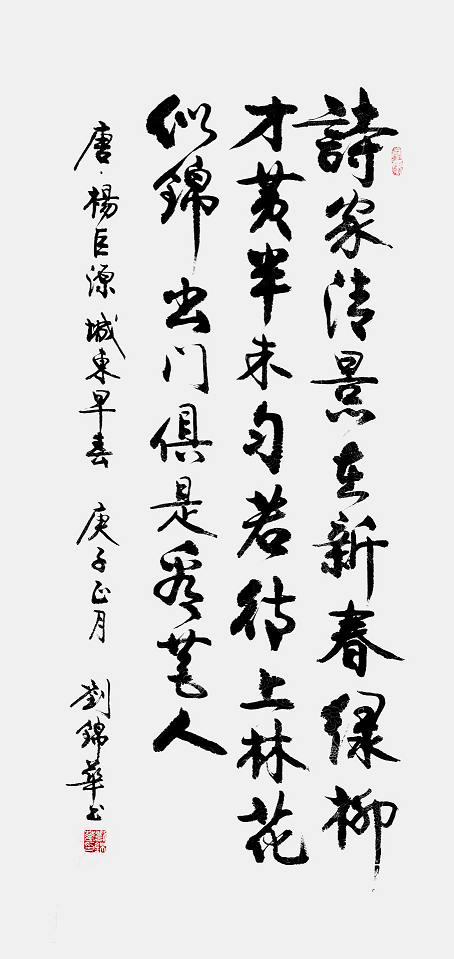 詩家清景在新春绿柳
才黄半未匀若待上林花
似錦出门俱是看花人
唐·楊巨源城東早春 庚子正月 劉錦華书